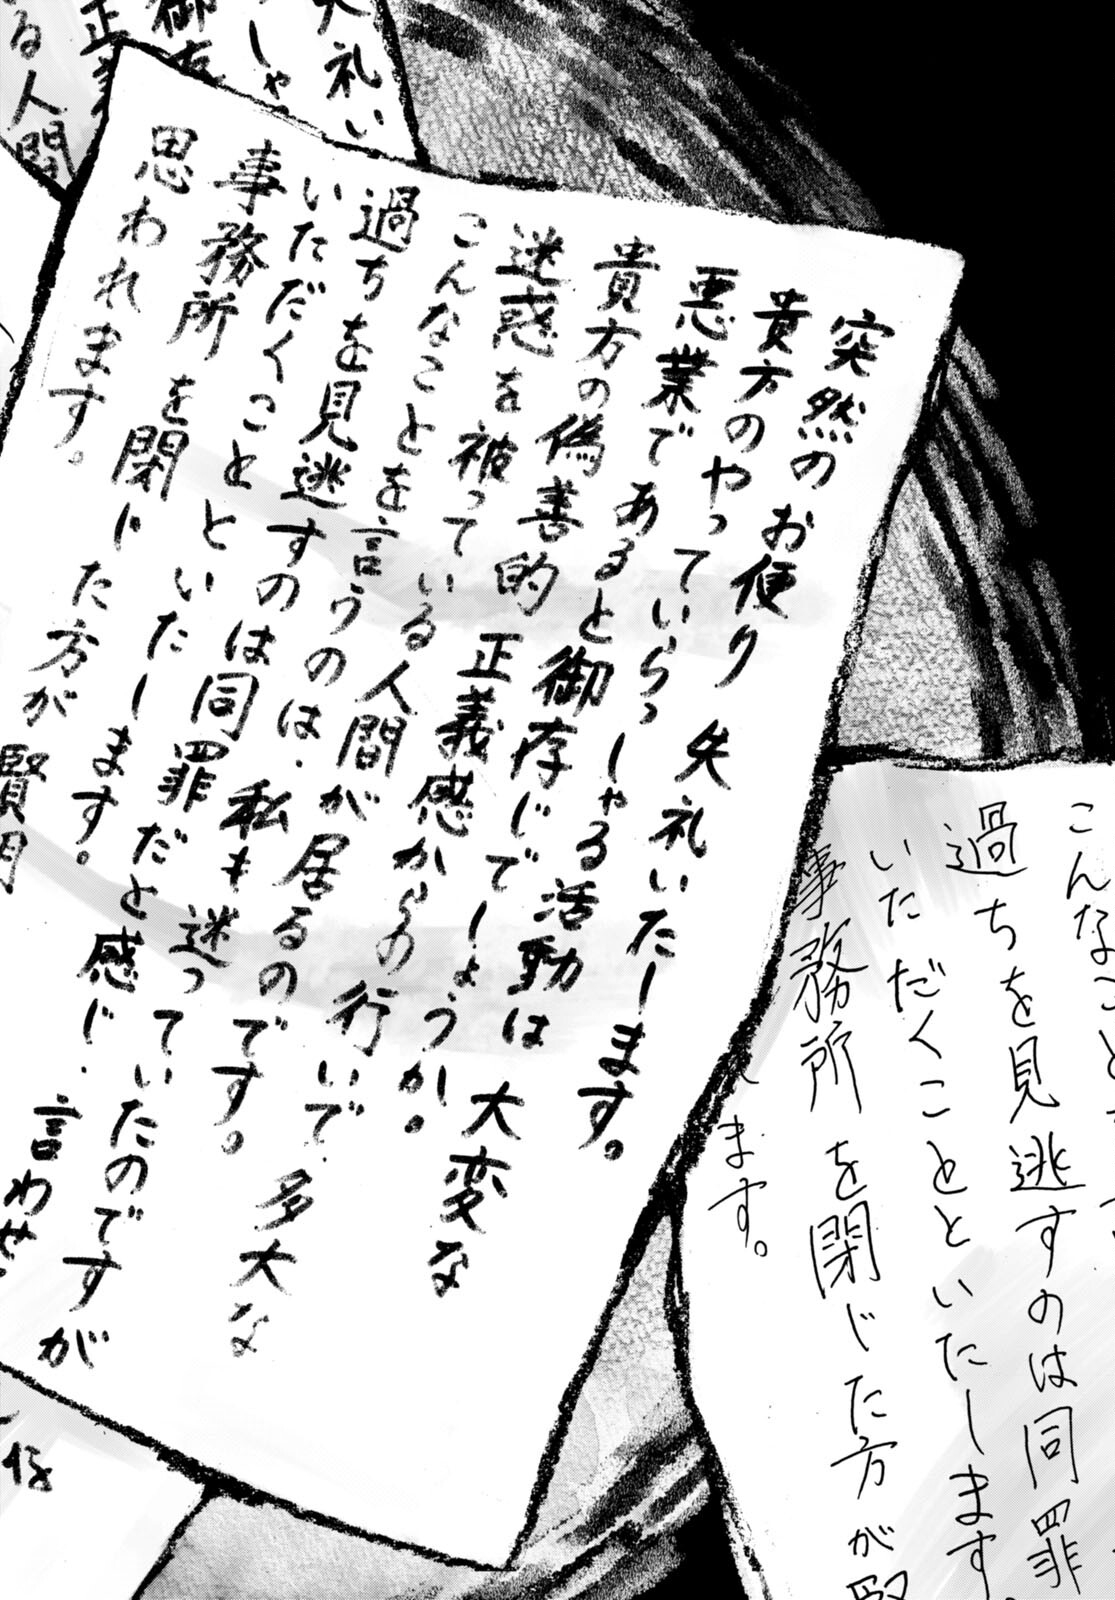 突然のお便り失礼いたします。
貴方のやっていらっしゃる活動は大変な
悪業であると御存じでしょうか。
貴方の偽善的正義感からの行いで、多大な
迷惑を被っている人間が居るのです。
こんなことを言うのは、私も迷っていたのですが
過ちを見逃すのは同罪だと感じ、言わせ
いただくことといたします。
事務所を閉じた方が賢明
思われます。
こんなこと
過ちを見逃すのは同罪
いただくことといたします。
事務所を閉じた方が
ます。
礼い
しゃ
御存
正義
る人間